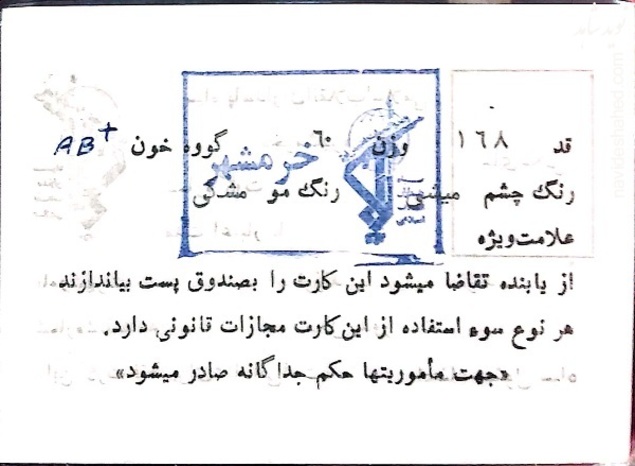 قد ۱۶۸ وزن ۶۰ گووه خون AB+
رنگ چشم میشی رنگ مو مشکی
علامت‌ویژه
از یابنده تقاضا میشود این کارت را بصندوق پست بیاندازند
هر نوع سوء استفاده از این‌کارت مجازات قانونی دارد.
«جهت مأموریتها حکم جداگانه صادر میشود»
خرمشهر